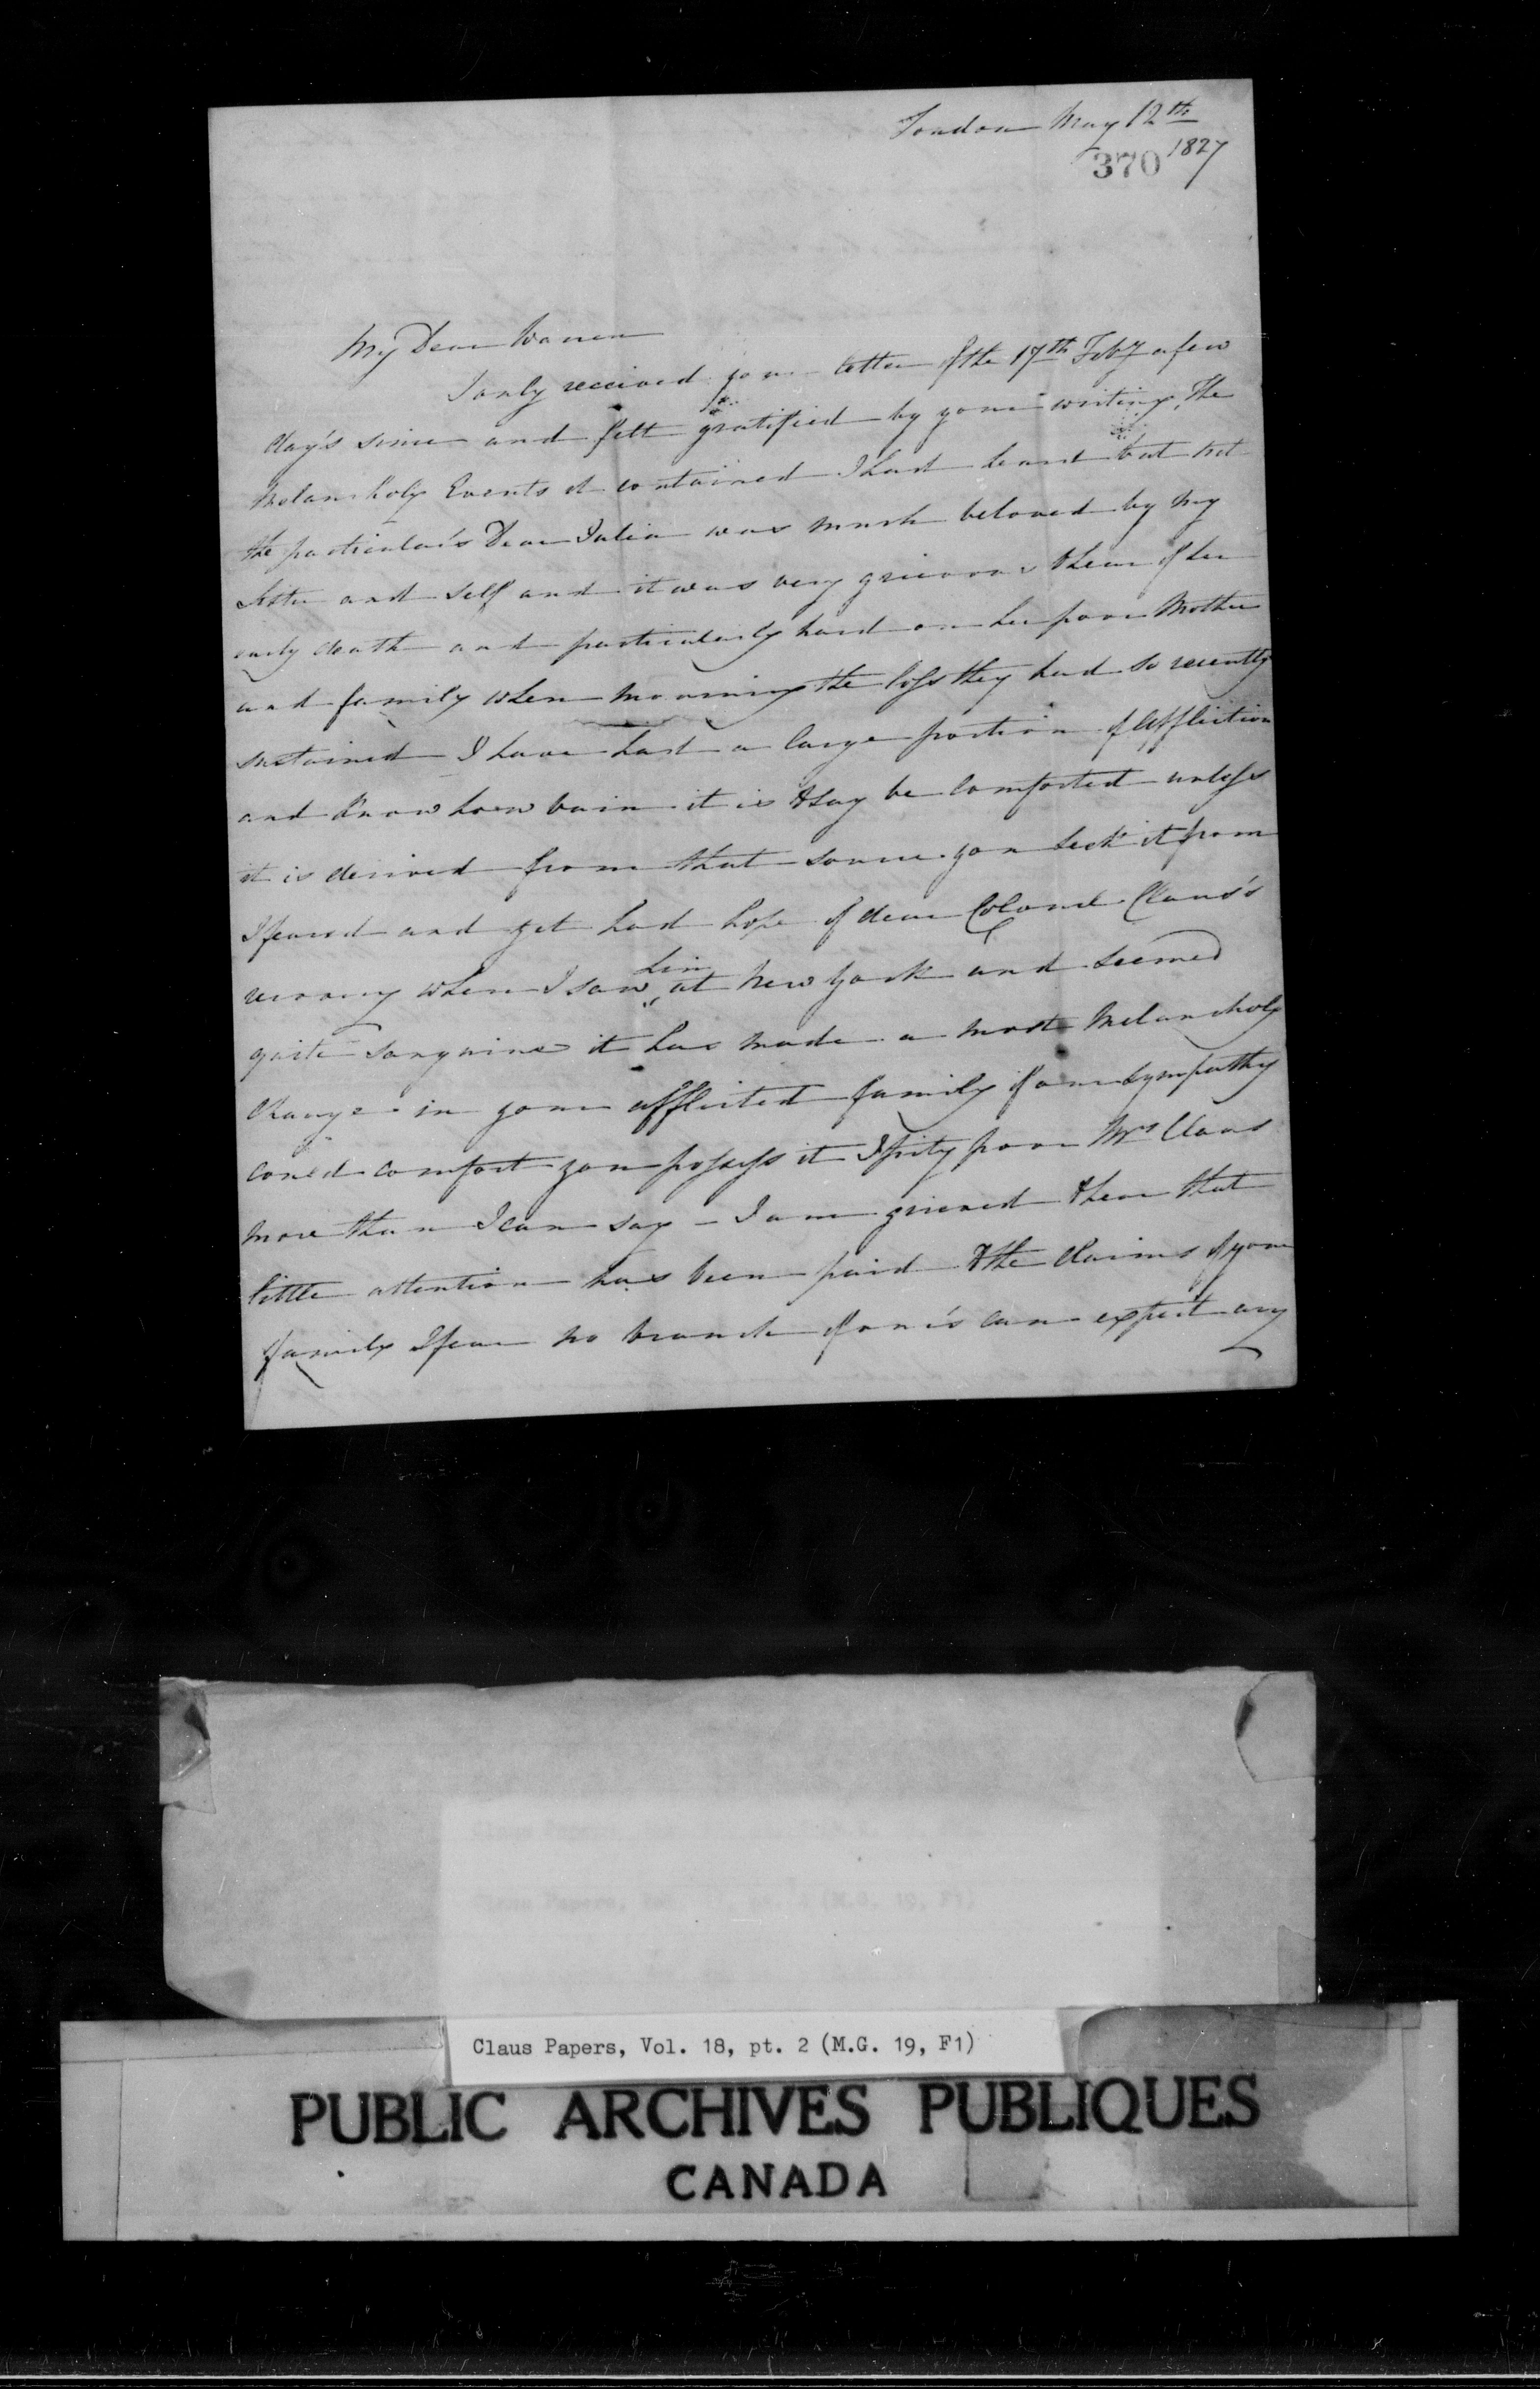 London May 12th
370 1827
My Dear Warren
I only received your letter of the 17th Feby a few
day's since and felt gratified by your writing, The
Melancholy Events it contained I had heard but not
the particular's Dear Julia was much beloved by my
Sister and Self and it was very grievous to hear of her
early death and particularly hard on her poor Mother
and family when mourning the loss they had so recently
sustained I have had a large portion of Affliction
and know how vain it is to say be Comforted unless
it is derived from that source you seek it from
I feared and yet had hope of dear Colonel Claus's
recovery when I saw him at New York and seemed
quite sanguine it has made a most Melancholy
Change in your afflicted family if our Sympathy
could comfort you possess it I pity poor Mrs Claus
more than I can say - I am grieved to hear that
little attention has been paid to the Claims of your
family I fear no branch of our's can expect any
Claus Papers, Vol. 18, pt. 2 (M.G. 19, F1)
PUBLIC ARCHIVES PUBLIQUES
CANADA